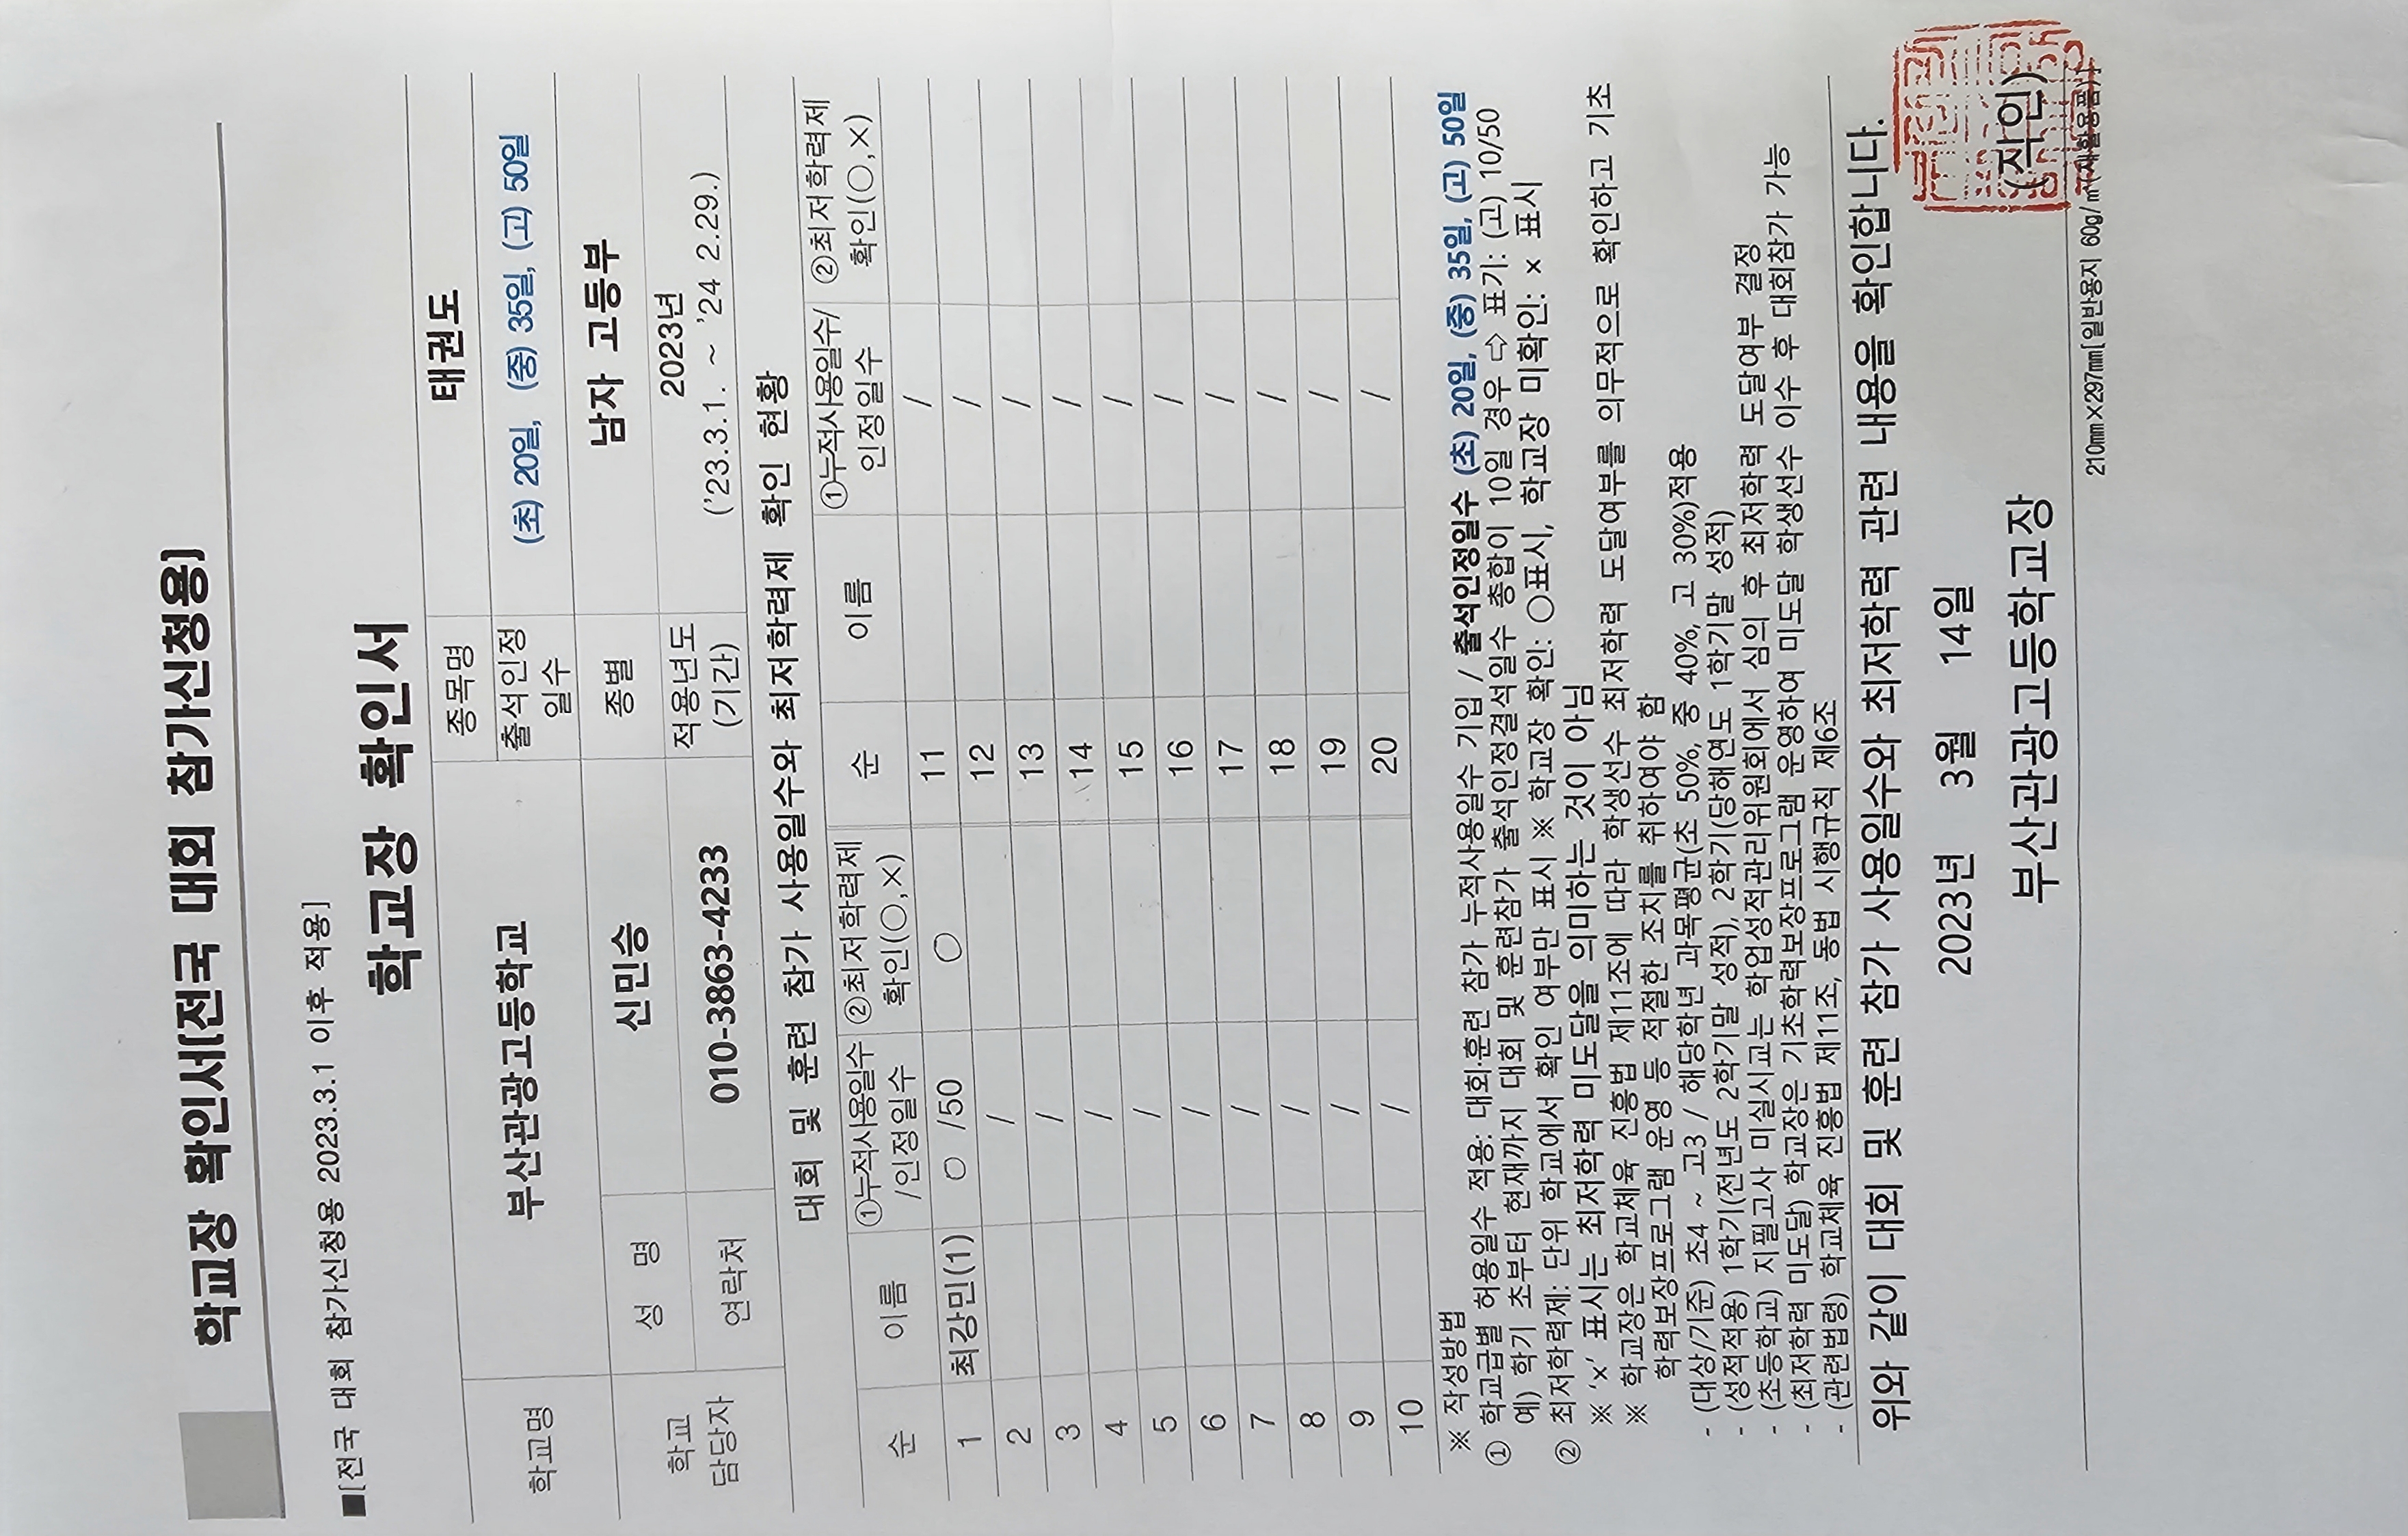 학교장 확인서[전국 대회 참가신청용]
■[전국 대회 참가신청용 2023.3.1 이후 적용]
학교장 확인서
학교명 부산관광고등학교 종목명 태권도
출석인정 일수 (초) 20일, (중) 35일, (고) 50일
학교 담당자 성 명 신민승 종별 남자 고등부
연락처 010-3863-4233 적용년도 (기간) 2023년 ('23.3.1. ~ '24 2.29.)
대회 및 훈련 참가 사용일수와 최저학력제 확인 현황
순 이름 ①누적사용일수 /인정일수 ②최저학력제 확인(○,×) 순 이름 ①누적사용일수/ 인정일수 ②최저학력제 확인(○,×)
1 최강민(1) ○ /50 ○ 11 /
2 / 12 /
3 / 13 /
4 / 14 /
5 / 15 /
6 / 16 /
7 / 17 /
8 / 18 /
9 / 19 /
10 / 20 /
※ 작성방법
① 학교급별 허용일수 적용: 대회·훈련 참가 누적사용일수 기입 / 출석인정일수 (초) 20일, (중) 35일, (고) 50일
예) 학기 초부터 현재까지 대회 및 훈련참가 출석인정결석일수 총합이 10일 경우 ⇨ 표기: (고) 10/50
② 최저학력제: 단위 학교에서 확인 여부만 표시 ※ 학교장 확인: ○표시, 학교장 미확인: × 표시
※ 'x' 표시는 최저학력 미도달을 의미하는 것이 아님
※ 학교장은 학교체육 진흥법 제11조에 따라 학생선수 최저학력 도달여부를 의무적으로 확인하고 기초
학력보장프로그램 운영 등 적절한 조치를 취하여야 함
- (대상/기준) 초4 ~ 고3 / 해당학년 과목평균(초 50%, 중 40%, 고 30%)적용
- (성적적용) 1학기(전년도 2학기말 성적), 2학기(당해연도 1학기말 성적)
- (초등학교) 지필고사 미실시교는 학업성적관리위원회에서 심의 후 최저학력 도달여부 결정
- (최저학력 미도달) 학교장은 기초학력보장프로그램 운영하여 미도달 학생선수 이수 후 대회참가 가능
- (관련법령) 학교체육 진흥법 제11조, 동법 시행규칙 제6조
위와 같이 대회 및 훈련 참가 사용일수와 최저학력 관련 내용을 확인합니다.
2023년 3월 14일
부산관광고등학교장 (직인)
210㎜×297㎜[일반용지 60g/㎡(재활용품)]